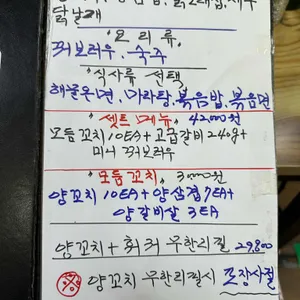 닭날개
"요리류"
꿔보러우, 숙주
"식사류 선택"
해물온면, 마라탕, 볶음밥, 볶음면
"셋트 메뉴" 42,000원
모듬꼬치 10EA + 고급갈비 240g +
미니 꿔보러우
"모듬꼬치"
양꼬치 10EA + 양삼겹 7EA +
양갈비살 3EA
양꼬치 + 훠궈 무한리필 29,800
양꼬치 무한리필시 포장사절